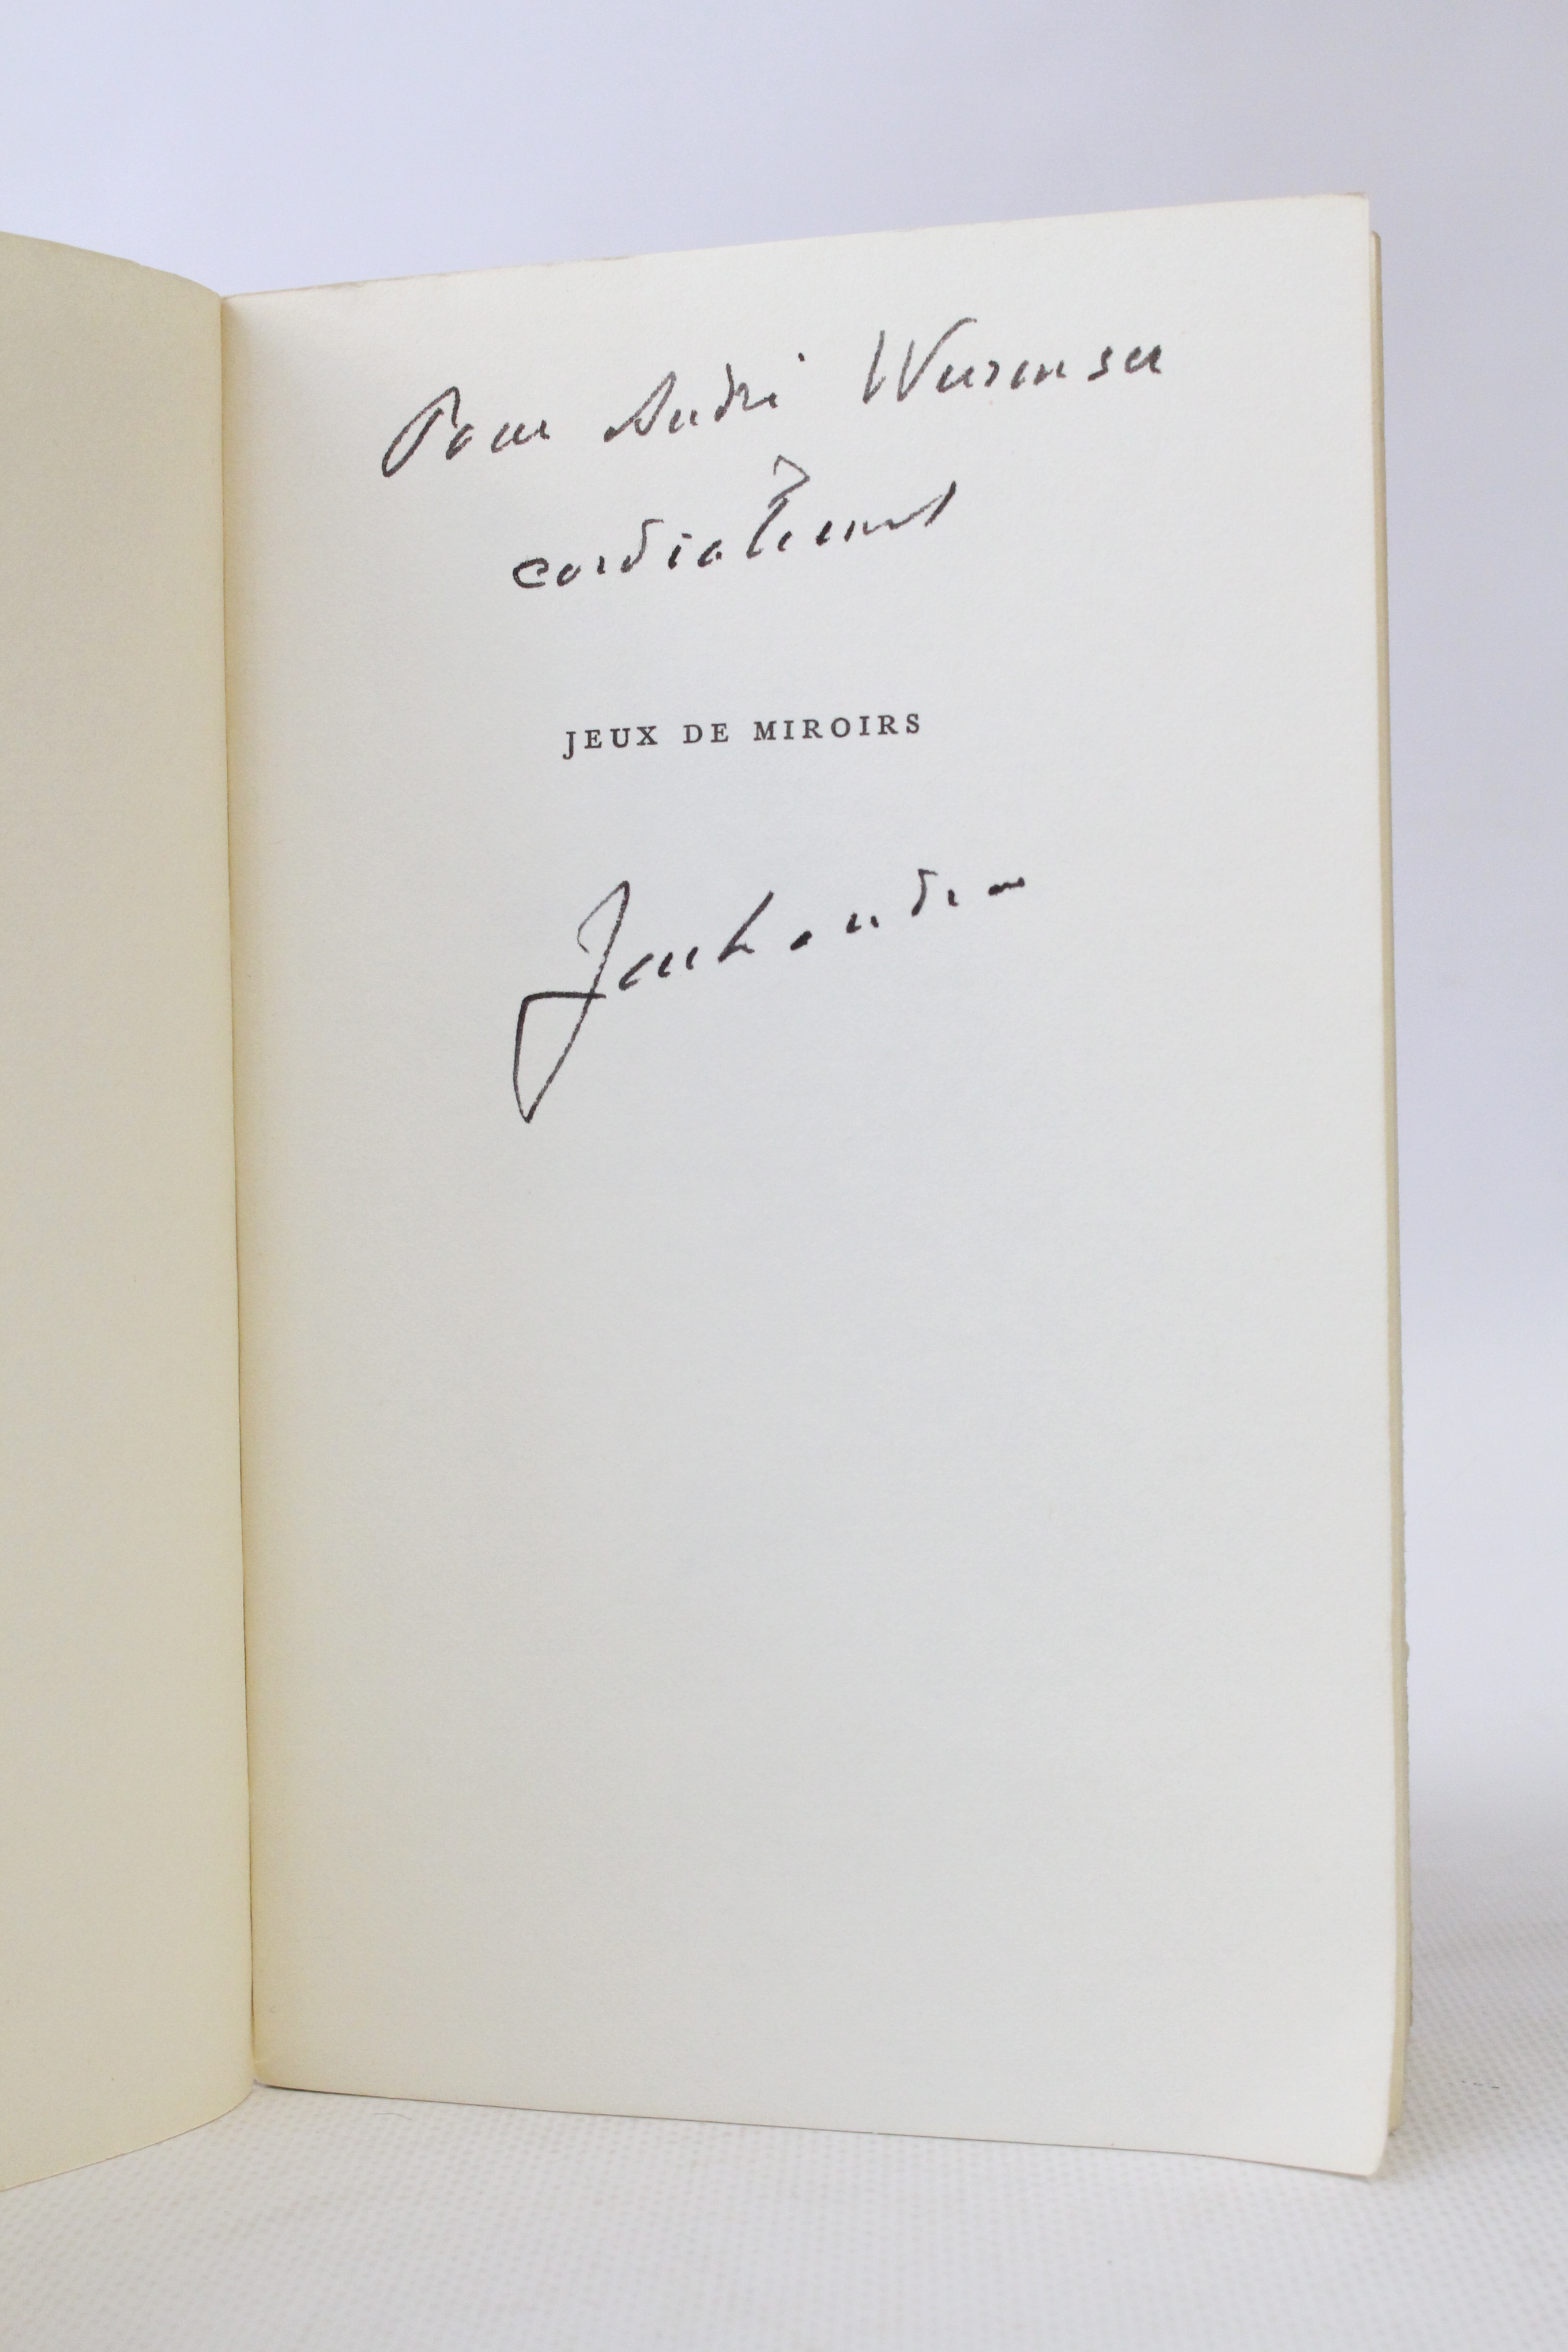 Pour André Wurmser
cordialement
JEUX DE MIROIRS
Jouhandeau